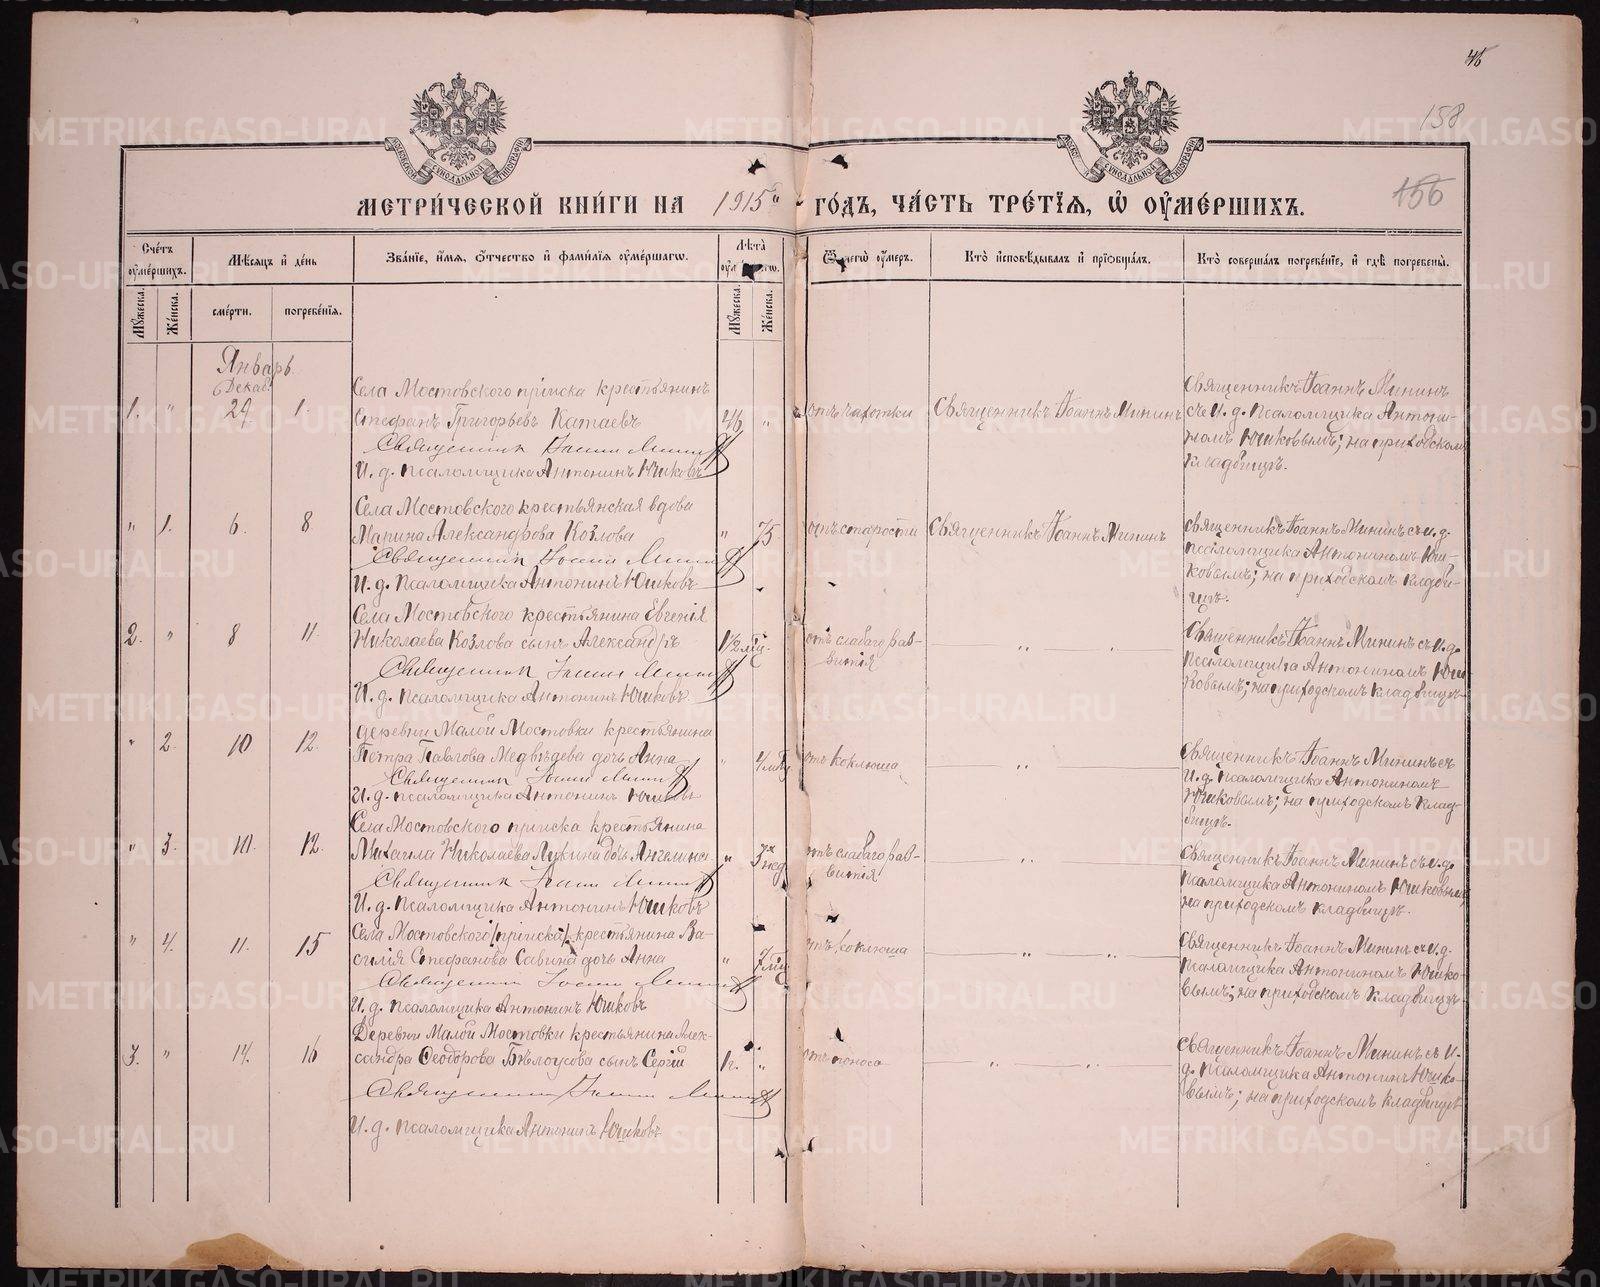 46
158
156
МЕТРИЧЕСКОЙ КНИГИ НА 1915 ГОДЪ, ЧАСТЬ ТРЕТІЯ, Ѽ ОУМЕРШИХЪ.
Счетъ оумершихъ.
Мѣсяцъ и день
Званіе, имя, отчество и фамилія оумершагѡ.
Лѣта
Ѿ чегѡ оумеръ.
Кто исповѣдывалъ и пріобщалъ.
Кто совершалъ погребеніе, и гдѣ погребены.
Мужеска.
Женска.
смерти.
погребенія.
Мужеска.
Женска.
Январь
Декаб.
1. " 24 1.
Села Мостовского прииска крестьянинъ
Стефанъ Григорьевъ Катаевъ
Священникъ Іоаннъ Мининъ
И. д. псаломщика Антонинъ Юшковъ
46 "
отъ чахотки
Священникъ Іоаннъ Мининъ
Священникъ Іоаннъ Мининъ
съ и. д. псаломщика Антони-
номъ Юшковымъ; на приходскомъ
кладбищѣ.
" 1. 6. 8
Села Мостовского крестьянская вдова
Марина Александрова Козлова
Священникъ Іоаннъ Мининъ
И. д. Псаломщика Антонинъ Юшковъ
" 75
отъ старости
Священникъ Іоаннъ Мининъ
Священникъ Іоаннъ Мининъ съ и. д.
псаломщика Антониномъ Юш-
ковымъ; на приходскомъ кладби-
щѣ.
2. " 8 11.
Села Мостовского крестьянина Евгенія
Николаева Козлова сынъ Александръ
Священникъ Іоаннъ Мининъ
И. д. псаломщика Антонинъ Юшковъ.
1½ мѣс.
отъ слабаго раз-
витія
Священникъ Іоаннъ Мининъ съ и. д.
псаломщика Антониномъ Юш-
ковымъ; на приходскомъ кладбищѣ
" 2. 10 12.
деревни Малой Мостовки крестьянина
Петра Павлова Медвѣдева дочь Анна
Священникъ Іоаннъ Мининъ
И. д. псаломщика Антонинъ Юшковъ
"
отъ коклюша
Священникъ Іоаннъ Мининъ съ
и. д. псаломщика Антониномъ
Юшковымъ; на приходскомъ клад-
бищѣ.
" 3. 10. 12.
Села Мостовского прииска крестьянина
Михаила Николаева Лукина дочь Ангелина
Священникъ Іоаннъ Мининъ
И. д. псаломщика Антонинъ Юшковъ
" 3 нед
отъ слабаго раз-
витія
Священникъ Іоаннъ Мининъ съ и. д.
псаломщика Антониномъ Юшковымъ
на приходскомъ кладбищѣ.
" 4. 11. 15
Села Мостовского /прииска/ крестьянина Ва-
силія Стефанова Савина дочь Анна
Священникъ Іоаннъ Мининъ
И. д. псаломщика Антонинъ Юшковъ
" 7 мѣс
отъ коклюша
Священникъ Іоаннъ Мининъ съ и. д.
псаломщика Антониномъ Юшко-
вымъ; на приходскомъ кладбищѣ
3. " 14. 16
Деревни Малой Мостовки крестьянина Алек-
сандра Ѳеодорова Бѣлоусова сынъ Сергій
Священникъ Іоаннъ Мининъ
И. д. псаломщика Антонинъ Юшковъ
1 г. "
отъ поноса
Священникъ Іоаннъ Мининъ съ и.
д. псаломщика Антонинъ Юшко-
вымъ; на приходскомъ кладбищѣ
METRIKI.GASO-URAL.RU